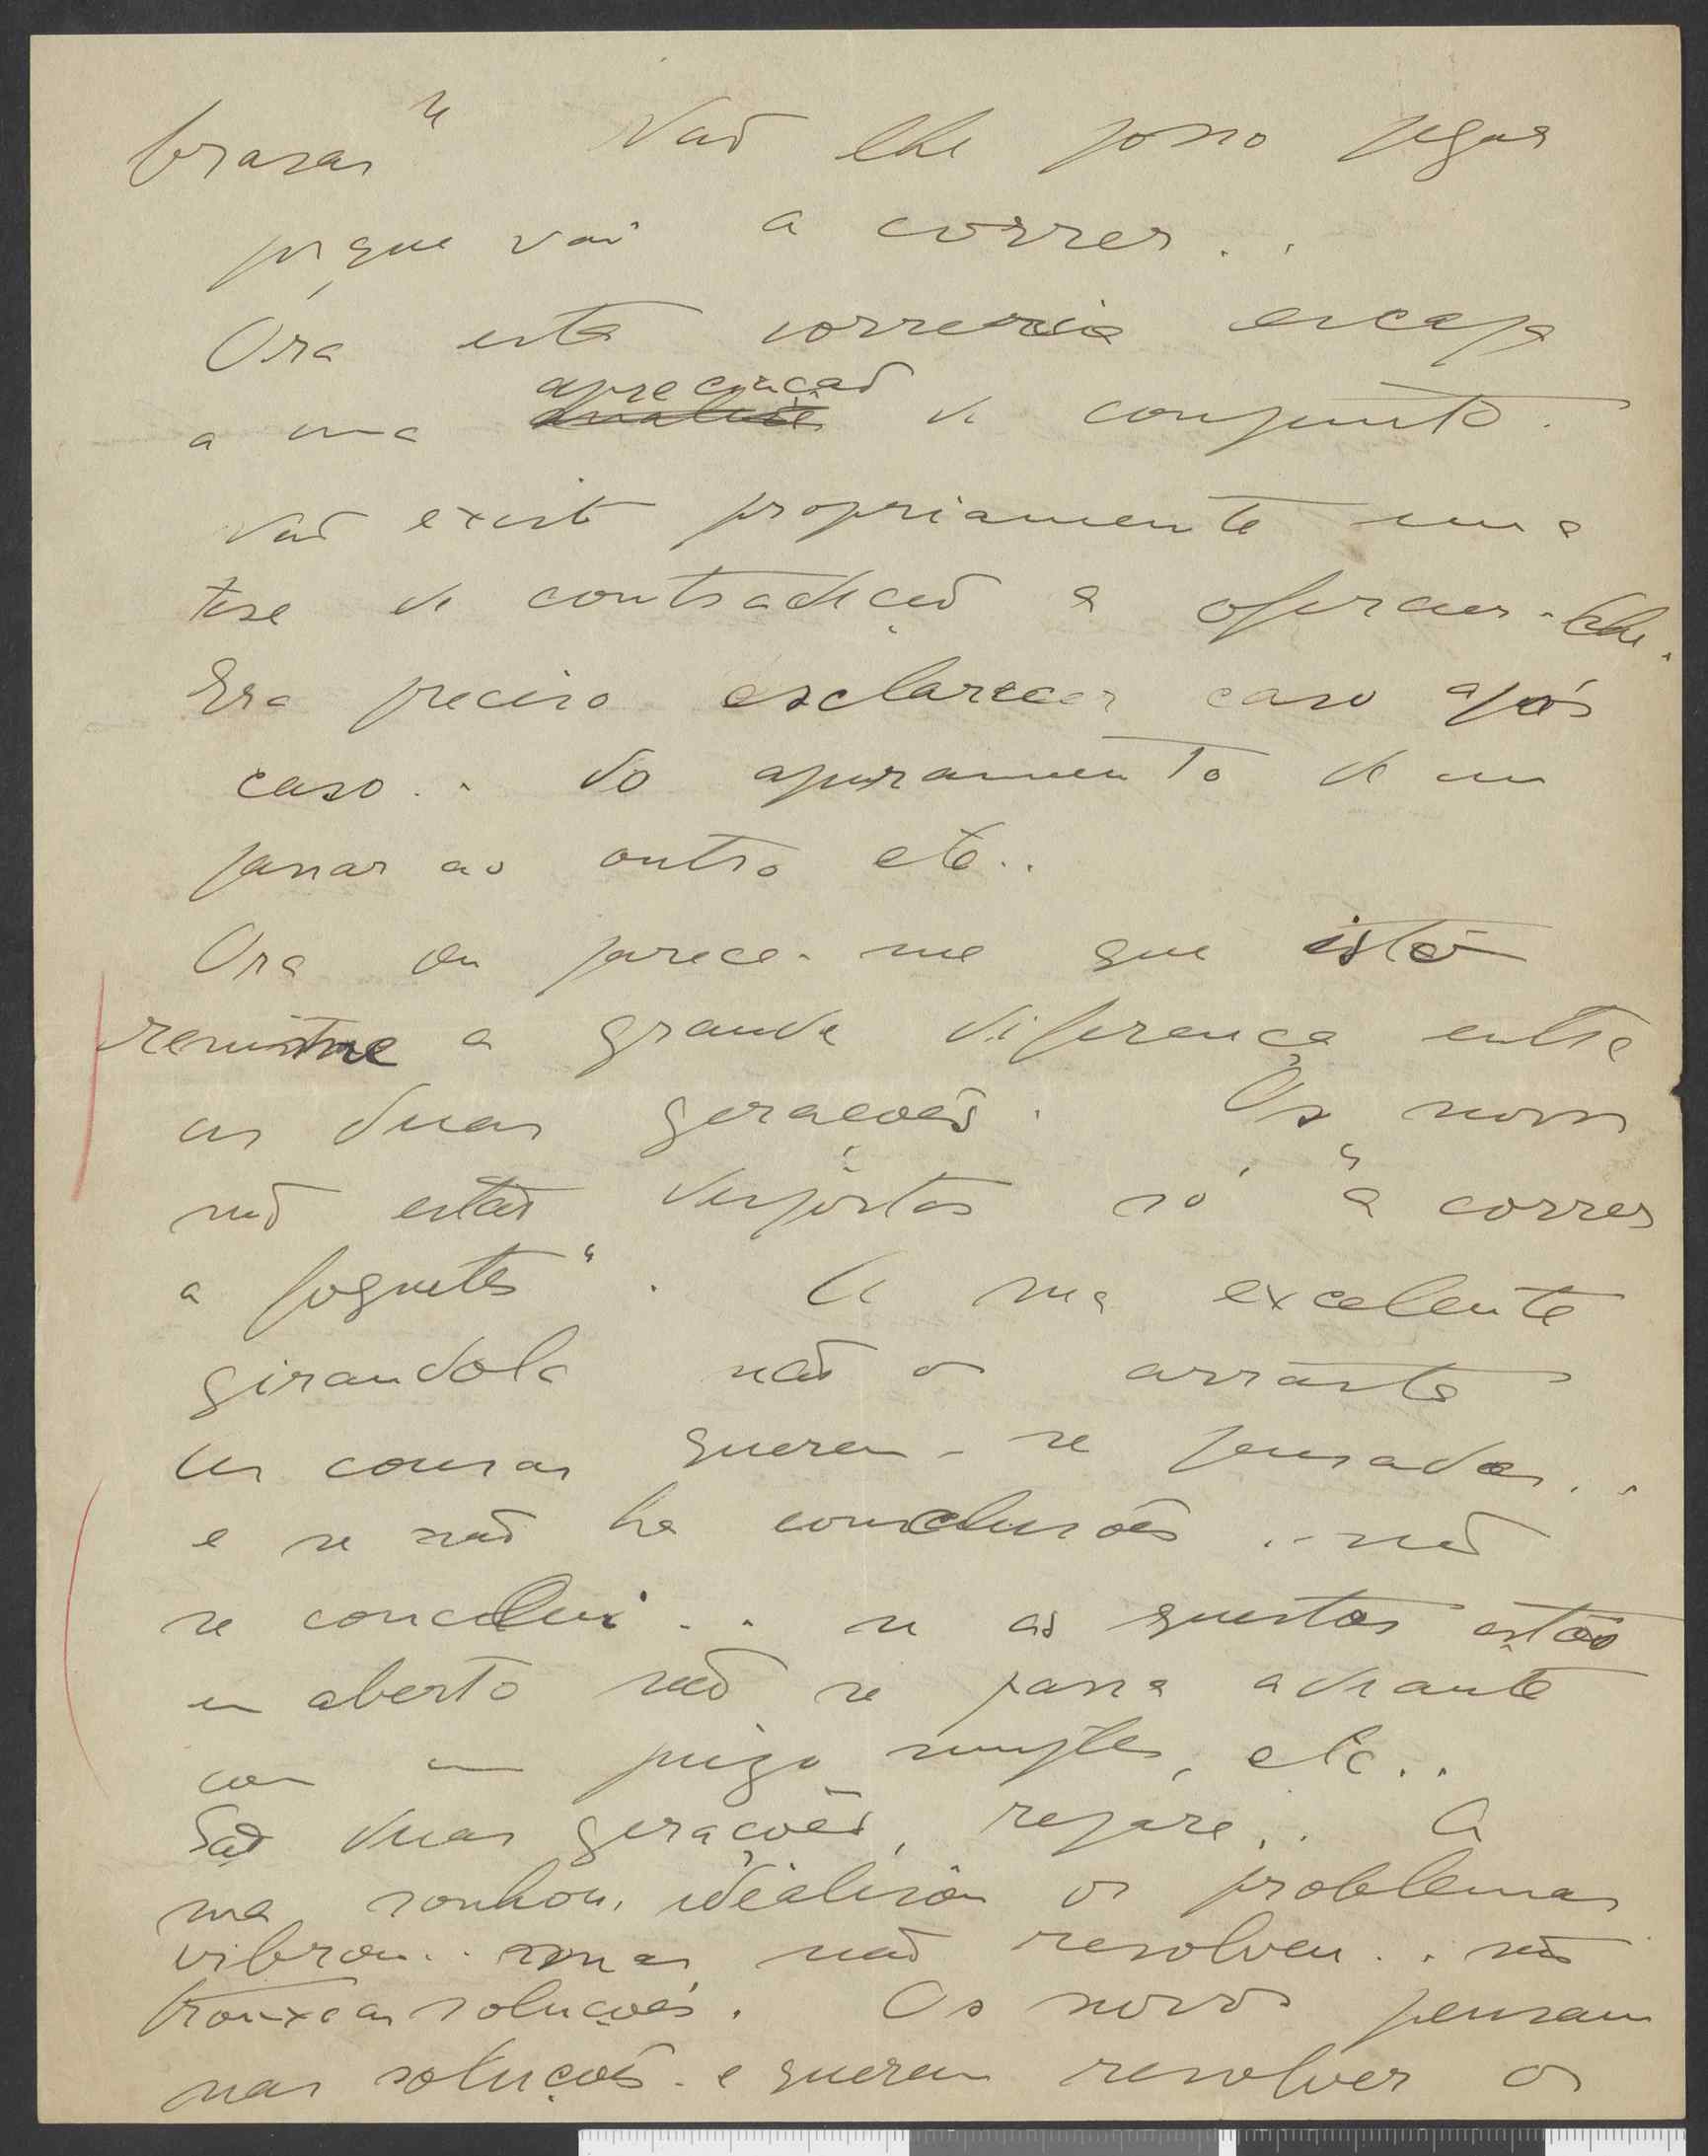 brasas" Não lhe posso pegar
porque vai a correr..
Ora esta correria escapa
a uma apreciação de conjunto.
Não existe propriamente uma
tese de contradição a oferecer-lhe.
Era preciso esclarecer caso após
caso.. do apuramento de um
passar ao outro etc..
Ora eu parece-me que isto
resume a grande diferença entre
as duas gerações. Os novos
não estão dispostos só "a correr
a foguetes". De uma excelente
girandola não os arrasta
As cousas querem-se pensadas..
e se não ha conclusões.. não
se conclui.. se as questões estão
em aberto não se passa adiante
com um juizo simples, etc..
São duas gerações, repare.. A
sua sonhou, idealisou os problemas
vibrou.. mas não resolveu.. não
trouxe as soluções. Os novos pensam
nas soluções e querem resolver os